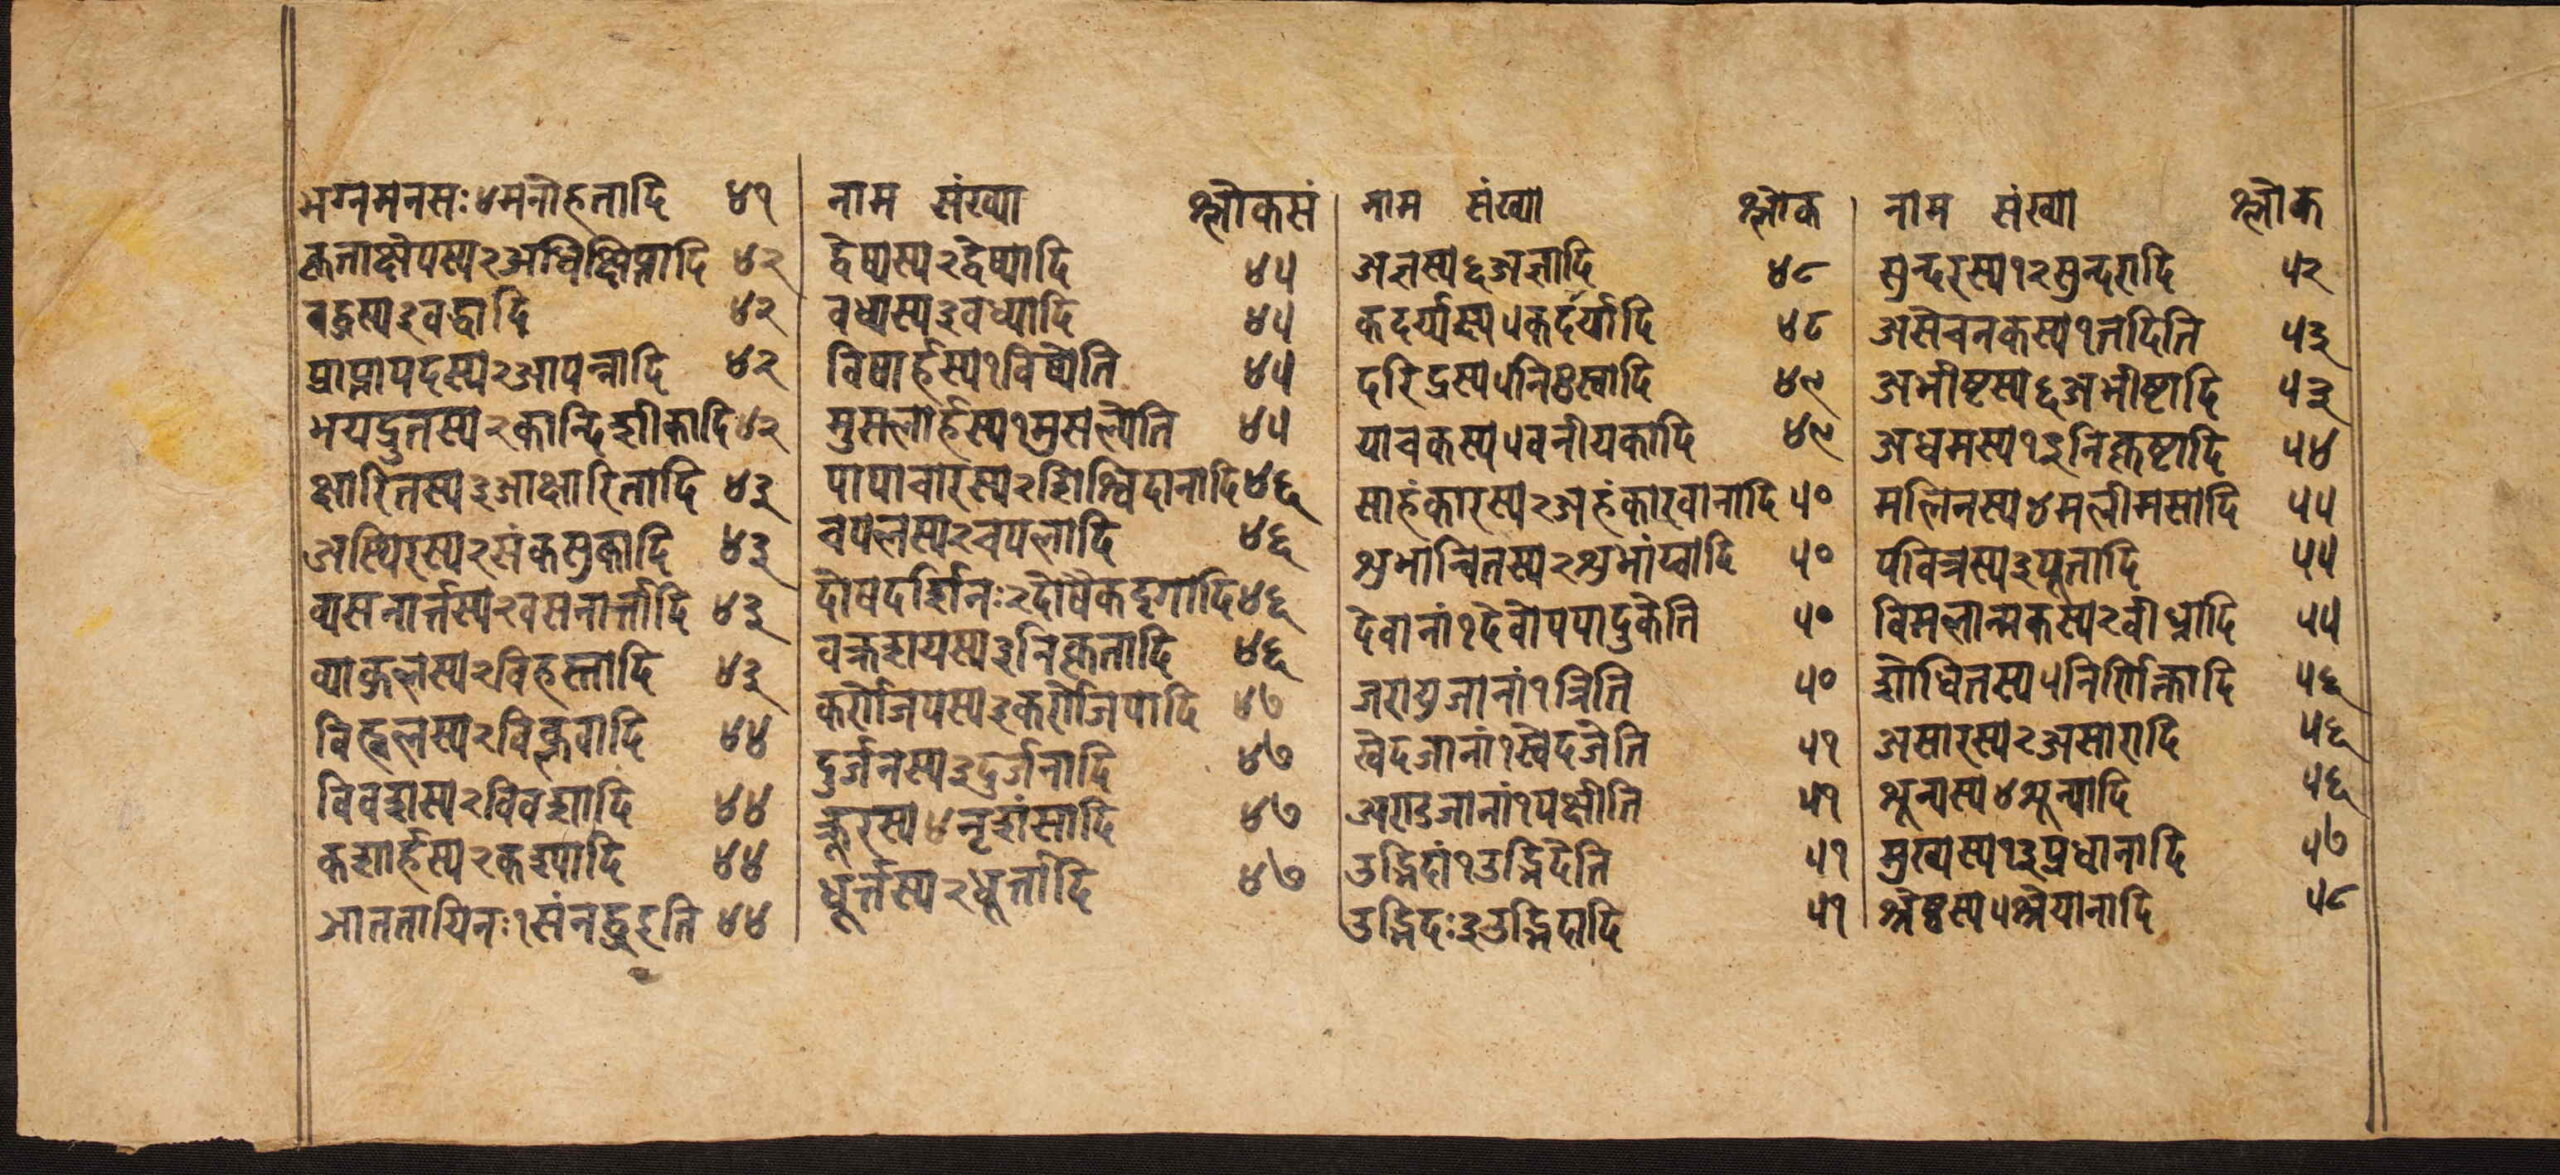 भग्नमनसः४मनोहतादि ४१
कृताक्षेपस्य२अधिक्षिप्तादि ४२
बद्धस्य३वद्धादि ४२
प्राप्तापदस्य२आपन्नादि ४२
भयद्रुतस्य२कान्दिशीकादि४२
क्षारितस्य३आक्षारितादि ४३
अस्थिरस्य२संकसुकादि ४३
व्यसनार्त्तस्य२वसनार्त्तादि ४३
व्याकुलस्य२विहस्तादि ४३
विह्वलस्य२विक्लवादि ४४
विवशस्य२विवशादि ४४
कशार्हस्य२कश्यादि ४४
आततायिनः१संनद्धइति ४४
नाम संख्या श्लोकसं
द्वेष्यस्य२द्वेष्यादि ४५
वध्यस्य३वध्यादि ४५
विषार्हस्य१विष्येति ४५
मुसलार्हस्य१मुसल्येति ४५
पापाचारस्य२शिश्विदानादि४६
चपलस्य२चपलादि ४६
दोषदर्शिनः२दोषैकदृगादि४६
वक्रशयस्य३निकृतादि ४६
करोजिपस्य३करोजिपादि ४७
दुर्जनस्य३दुर्जनादि ४७
क्रूरस्य४नृशंसादि ४७
धूर्त्तस्य२धूर्त्तादि ४७
नाम संख्या श्लोक
अज्ञस्य६अज्ञादि ४८
कदर्य्यस्य५कदर्यादि ४८
दरिद्रस्य५निःस्वादि ४९
याचकस्य५वनीयकादि ४९
साहंकारस्य२अहंकारवानादि ५०
शुभान्वितस्य२शुभंय्वादि ५०
देवानां१देवोपपादुकेति ५०
जरायुजानां१त्रिति ५०
स्वेदजानां१स्वेदजेति ५१
अण्डजानां१पक्षीति ५१
उद्भिदां१उद्भिदेति ५१
उद्भिदः३उद्भिदादि ५१
नाम संख्या श्लोक
सुन्दरस्य१२सुन्दरादि ५२
असेचनकस्य१तदिति ५३
अभीष्टस्य६अभीष्टादि ५३
अधमस्य१३निकृष्टादि ५४
मलिनस्य४मलीमसादि ५५
पवित्रस्य३पूतादि ५५
विमलात्मकस्य२वीध्रादि ५५
शोधितस्य५निर्णिक्तादि ५६
असारस्य२असारादि ५६
शून्यस्य४शून्यादि ५६
मुख्यस्य१३प्रधानादि ५७
श्रेष्ठस्य५श्रेयानादि ५८